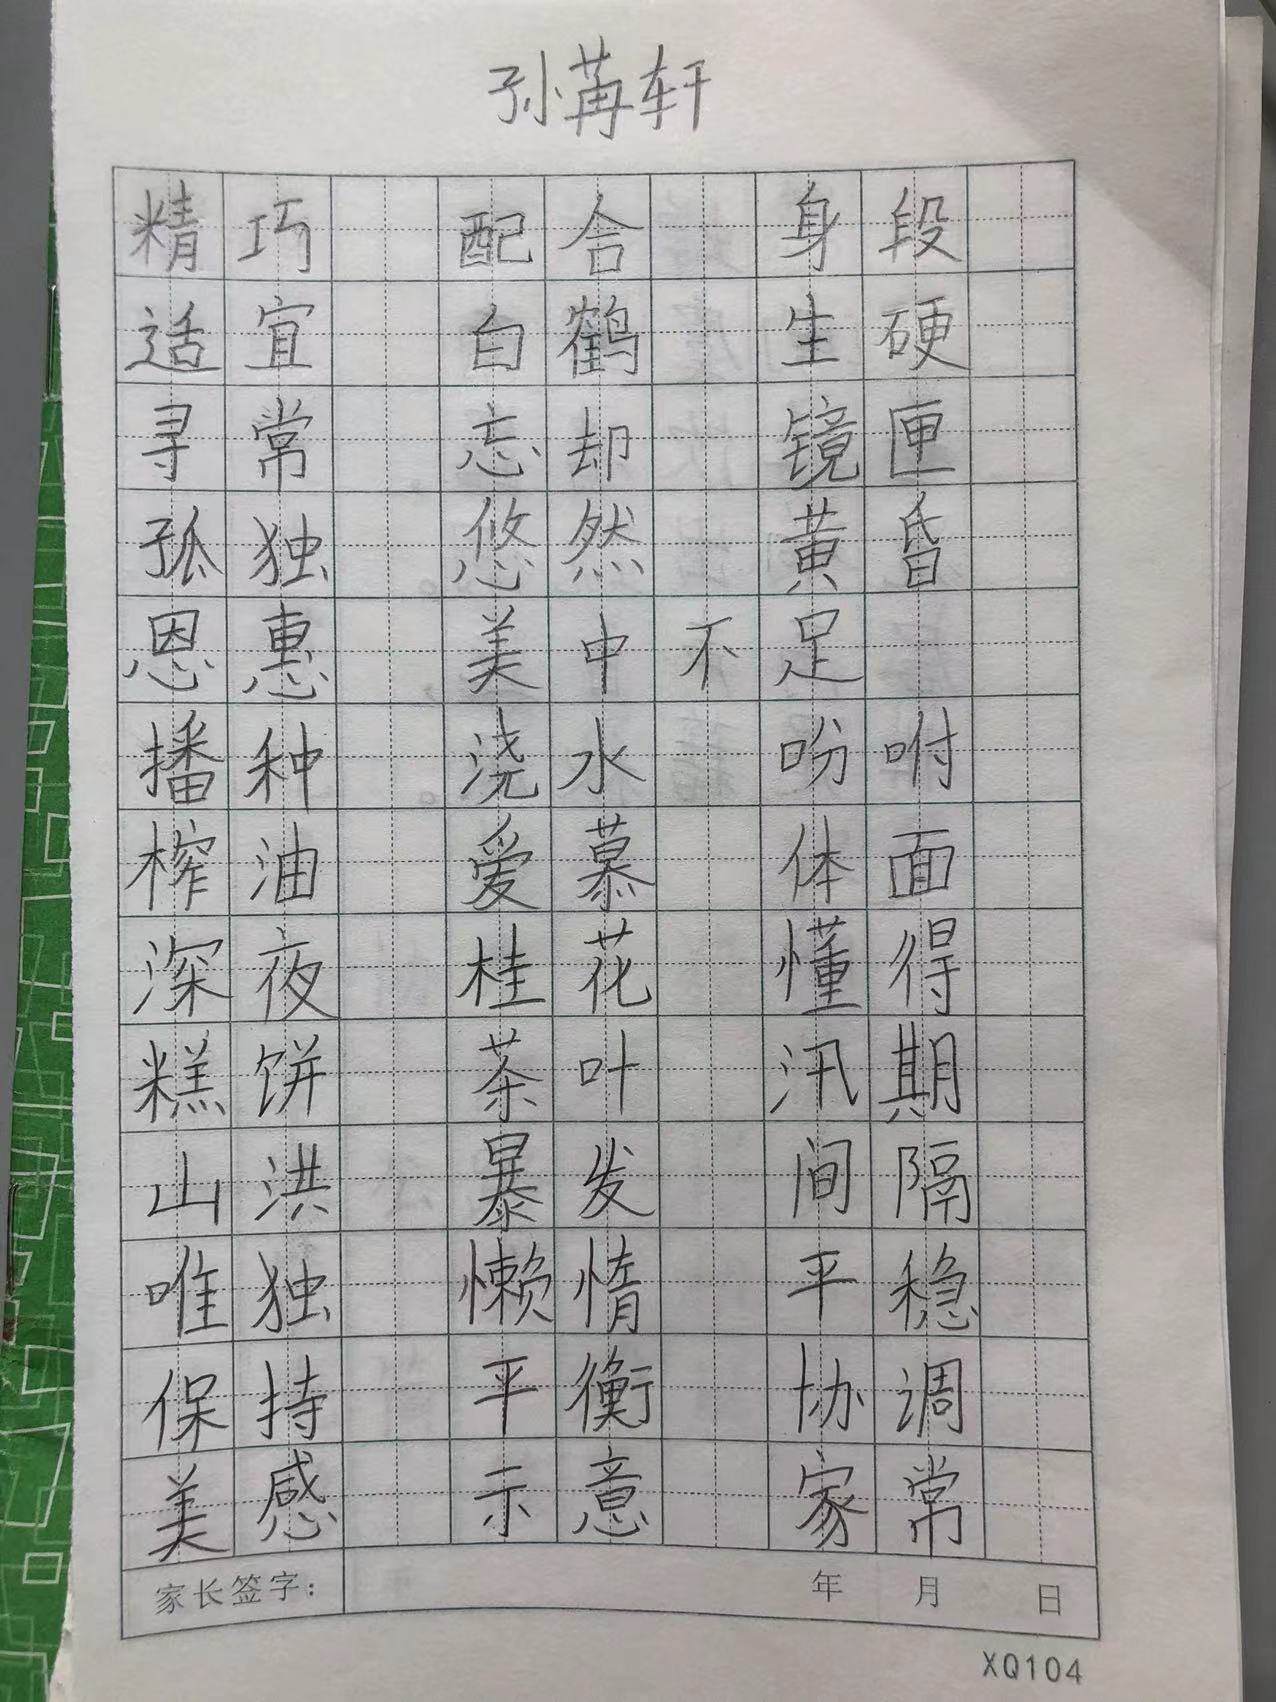 孙苒轩
精巧 配合 身段
适宜 白鹤 生硬
寻常 忘却 镜匣
孤独 悠然 黄昏
恩惠 美中不足
播种 浇水 吩咐
榨油 爱慕 体面
深夜 桂花 懂得
糕饼 茶叶 汛期
山洪 暴发 间隔
唯独 懒惰 平稳
保持 平衡 协调
美感 示意 家常
家长签字： 年 月 日
XQ104